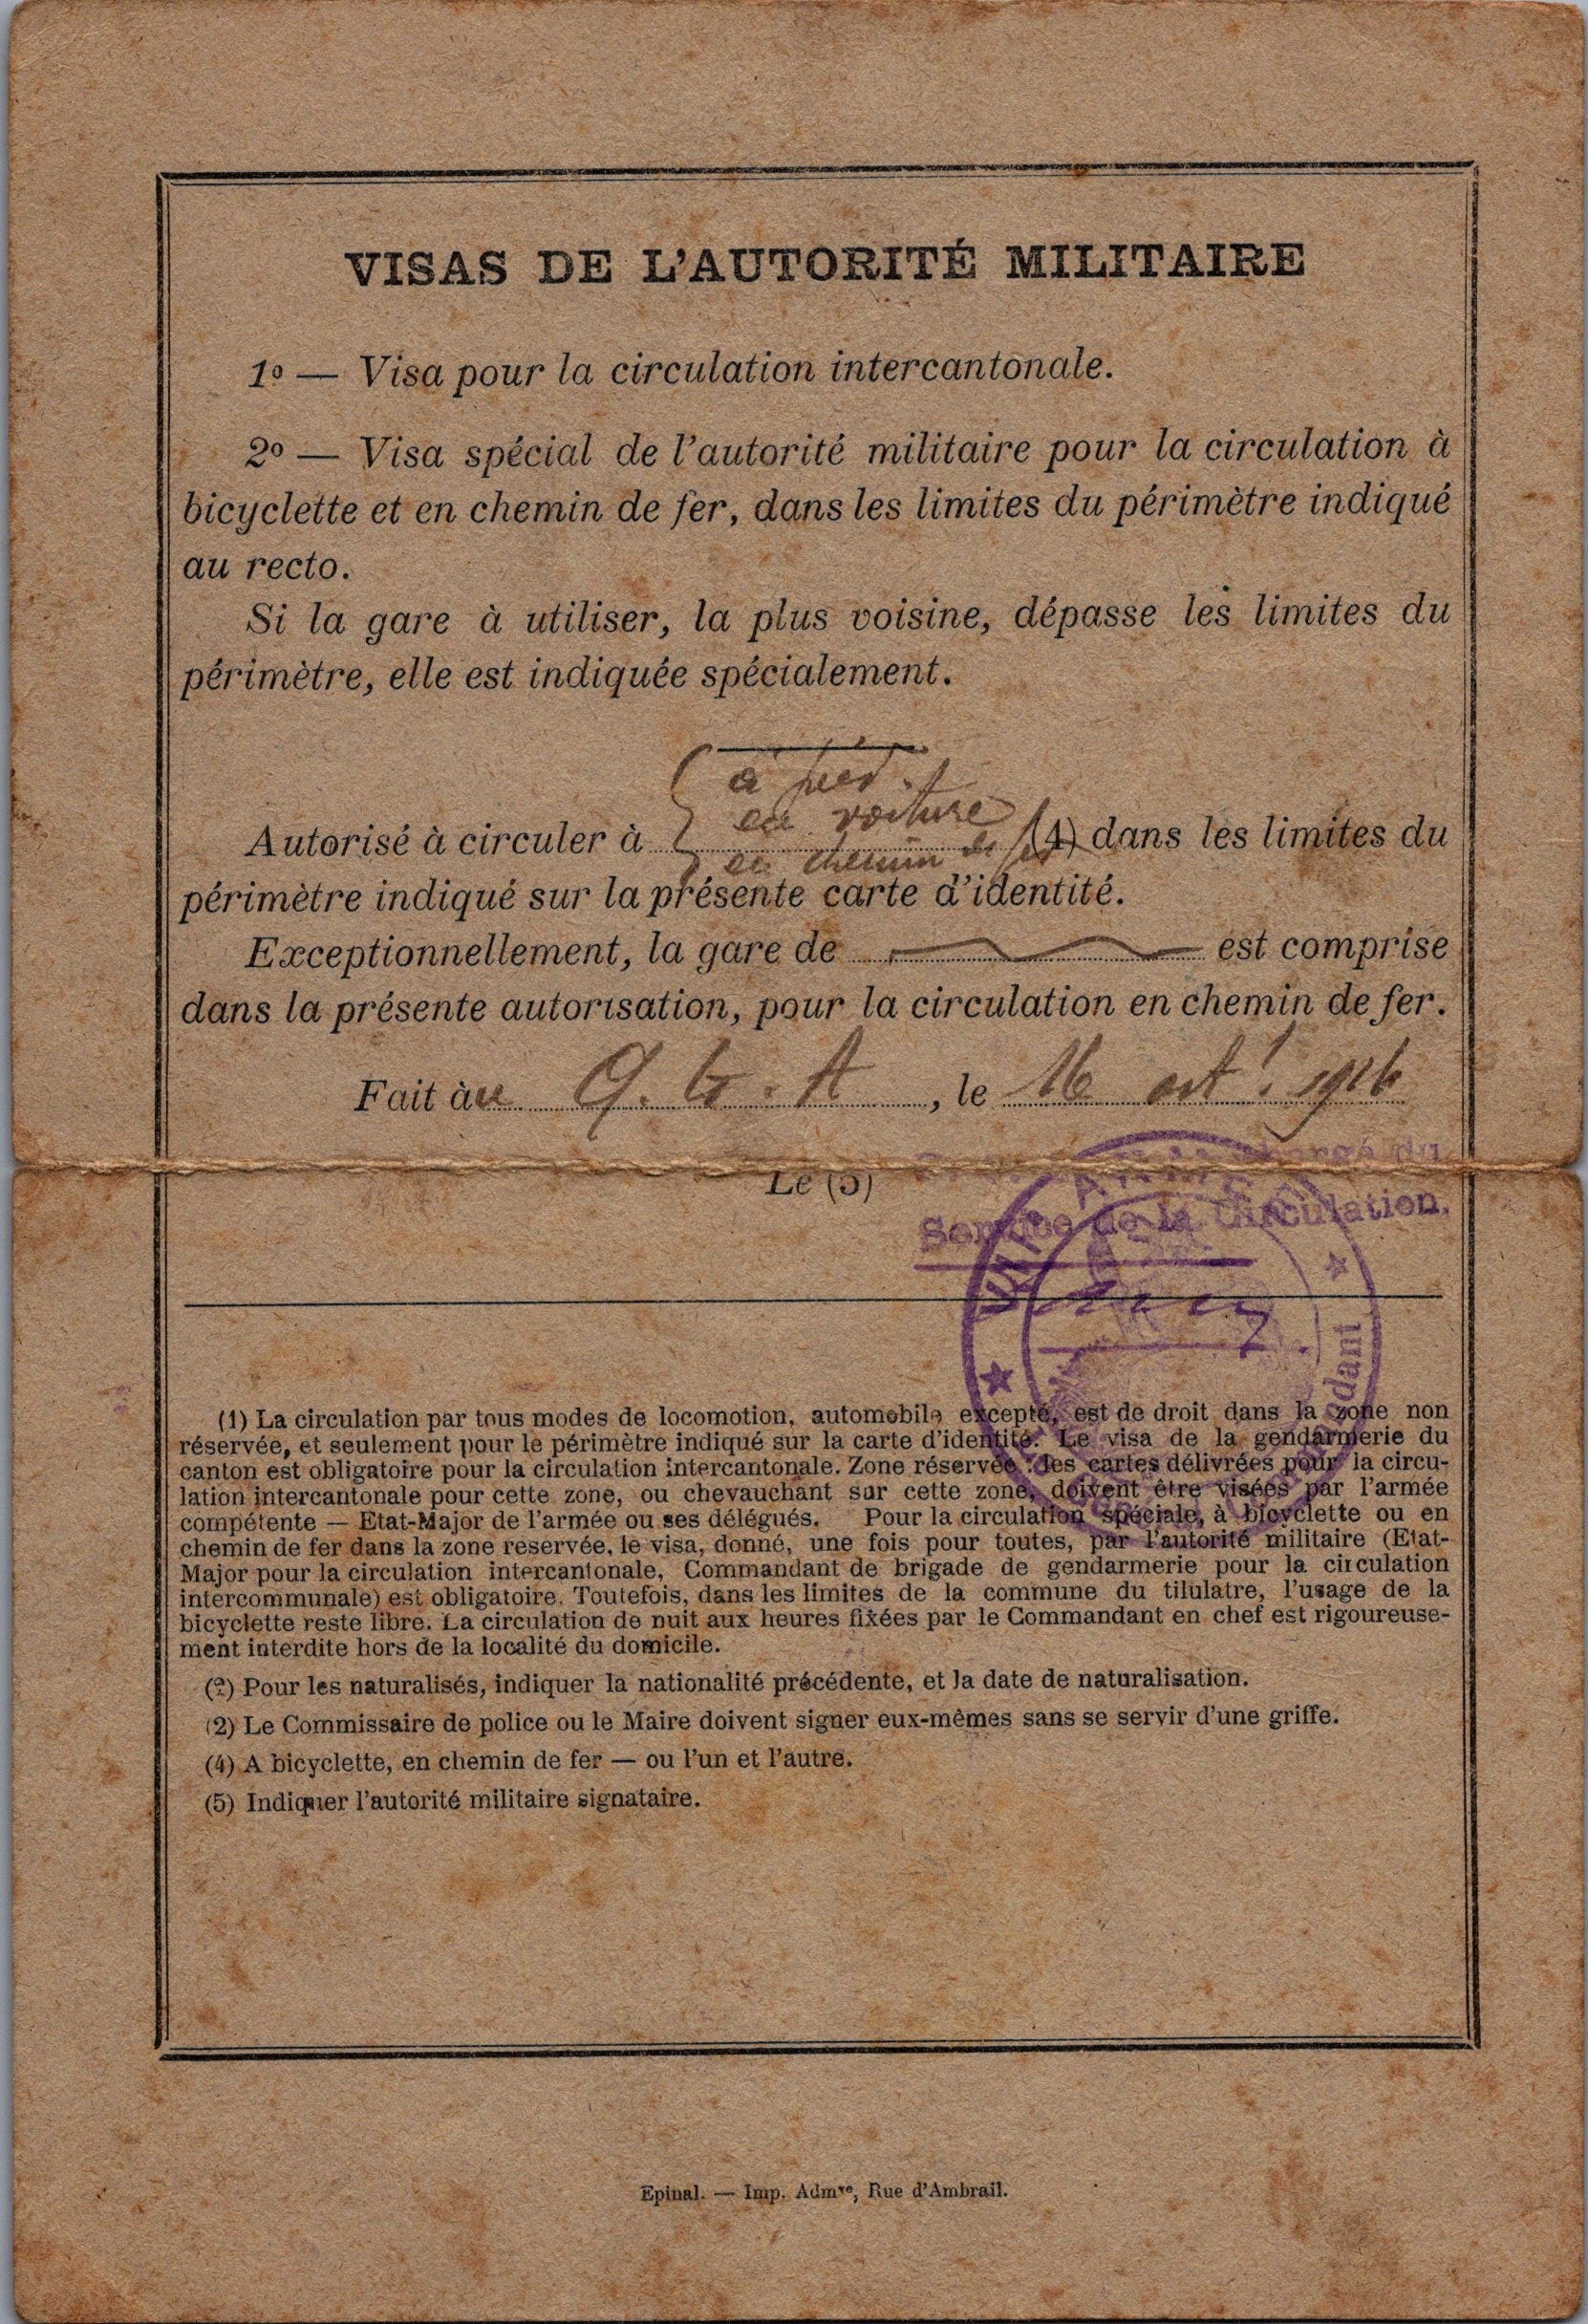 VISAS DE L'AUTORITÉ MILITAIRE
1º — Visa pour la circulation intercantonale.
2º — Visa spécial de l'autorité militaire pour la circulation à
bicyclette et en chemin de fer, dans les limites du périmètre indiqué
au recto.
Si la gare à utiliser, la plus voisine, dépasse les limites du
périmètre, elle est indiquée spécialement.
à pied
en voiture
Autorisé à circuler à en chemin de fer (4) dans les limites du
périmètre indiqué sur la présente carte d'identité.
Exceptionnellement, la gare de est comprise
dans la présente autorisation, pour la circulation en chemin de fer.
Fait àu Q. G. A, le 16 oct. 1916
Le (5)
chargé du
Service de la Circulation.
(1) La circulation par tous modes de locomotion, automobile excepté, est de droit dans la zone non
réservée, et seulement pour le périmètre indiqué sur la carte d'identité. Le visa de la gendarmerie du
canton est obligatoire pour la circulation intercantonale. Zone réservée : les cartes délivrées pour la circu-
lation intercantonale pour cette zone, ou chevauchant sur cette zone, doivent être visées par l'armée
compétente — Etat-Major de l'armée ou ses délégués. Pour la circulation spéciale, à bicyclette ou en
chemin de fer dans la zone reservée, le visa, donné, une fois pour toutes, par l'autorité militaire (Etat-
Major pour la circulation intercantonale, Commandant de brigade de gendarmerie pour la circulation
intercommunale) est obligatoire. Toutefois, dans les limites de la commune du tilulatre, l'usage de la
bicyclette reste libre. La circulation de nuit aux heures fixées par le Commandant en chef est rigoureuse-
ment interdite hors de la localité du domicile.
(2) Pour les naturalisés, indiquer la nationalité précédente, et la date de naturalisation.
(2) Le Commissaire de police ou le Maire doivent signer eux-mêmes sans se servir d'une griffe.
(4) A bicyclette, en chemin de fer — ou l'un et l'autre.
(5) Indiquer l'autorité militaire signataire.
Epinal. — Imp. Admve, Rue d'Ambrail.